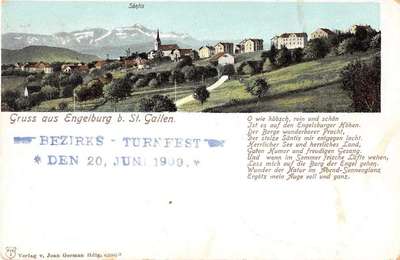 Säntis
Gruss aus Engelburg b. St. Gallen.
O wie hübsch, rein und schön
Ist es auf den Engelburger Höhen.
Der Berge wunderbarer Pracht,
Der stolze Säntis mir entgegen lacht.
Herrlicher See und herrliches Land,
Guten Humor und freudigen Gesang.
Und wenn im Sommer frische Lüfte wehen,
Lass mich auf die Berg der Engel gehen.
Wunder der Natur im Abend-Sonnenglanz
Ergötz mein Auge voll und ganz.
BEZIRKS - TURNFEST
* DEN 20. JUNI 1909. *
Verlag v. Jean German Hdlg.